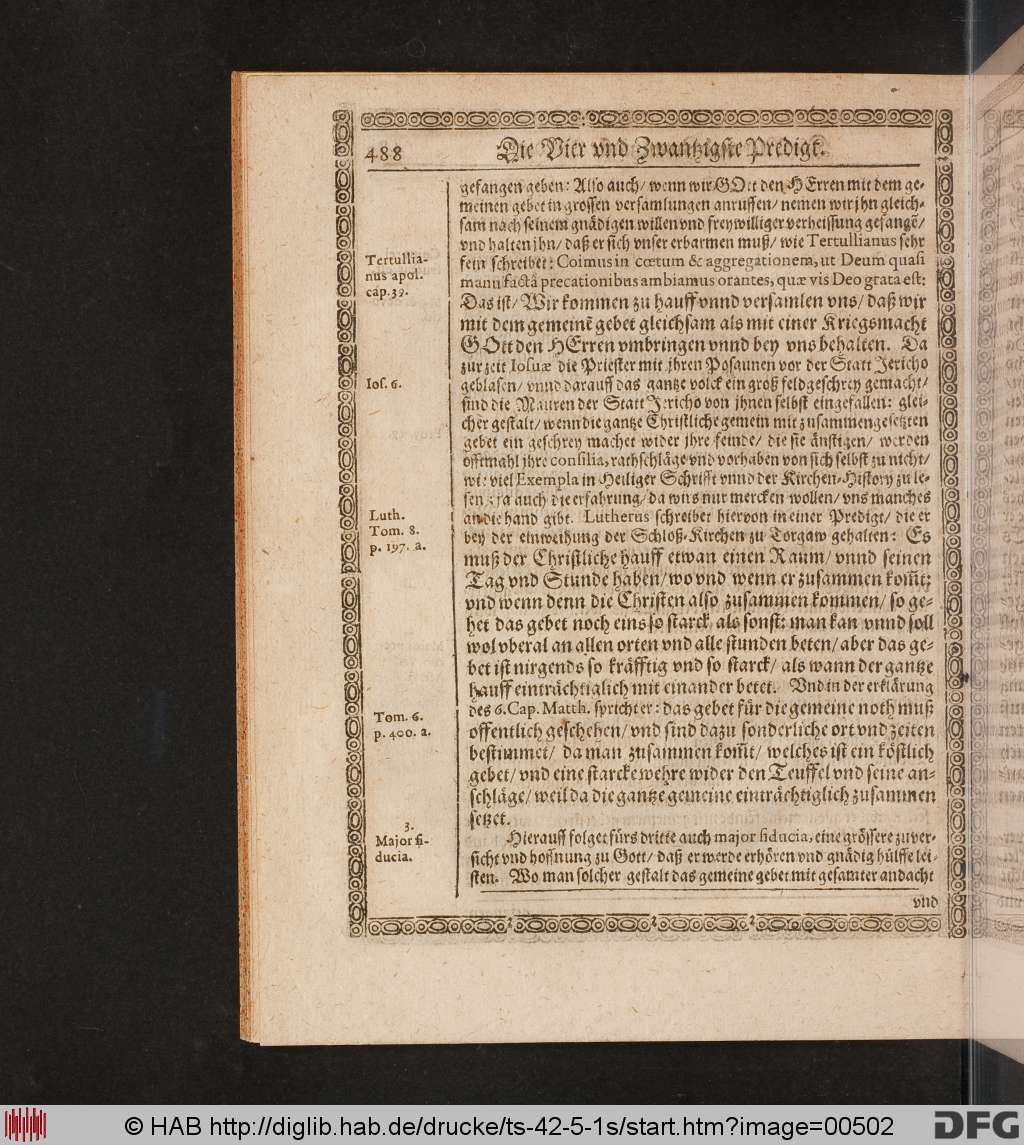 488
Die Vier vnd Zwantzigste Predigt.
gefangen geben: Also auch/ wenn wir GOtt den HErren mit dem ge-
meinen gebet in grossen versamlungen anruffen/ nemen wir jhn gleich-
sam nach seinem gnädigen willen vnd freywilliger verheissung gefangẽ/
vnd halten jhn/ daß er sich vnser erbarmen muß/ wie Tertullianus sehr
fein schreibet: Coimus in cœtum & aggregationem, ut Deum quasi
manu factâ precationibus ambiamus orantes, quæ vis Deo grata est:
Tertullia-
nus apol.
cap. 39.
Das ist/ Wir kommen zu hauff vnnd versamlen vns/ daß wir
mit dem gemeinẽ gebet gleichsam als mit einer Kriegsmacht
GOtt den HErren vmbringen vnnd bey vns behalten. Da
zur zeit Iosuæ die Priester mit jhren Posaunen vor der Statt Jericho
geblasen/ vnnd darauff das gantze volck ein groß feldgeschrey gemacht/
Ios. 6.
sind die Mauren der Statt Jericho von jhnen selbst eingefallen: glei-
cher gestalt/ wenn die gantze Christliche gemein mit zusammengesetzten
gebet ein geschrey machet wider jhre feinde/ die sie änstigen/ werden
offtmahl jhre consilia, rathschläge vnd vorhaben von sich selbst zu nicht/
wie viel Exempla in Heiliger Schrifft vnnd der Kirchen-History zu le-
sen: ja auch die erfahrung/ da wirs nur mercken wollen/ vns manches
an die hand gibt. Lutherus schreibet hiervon in einer Predigt/ die er
bey der einweihung der Schloß-Kirchen zu Torgaw gehalten: Es
Luth.
Tom. 8.
p. 197. a.
muß der Christliche hauff etwan einen Raum/ vnnd seinen
Tag vnd Stunde haben/ wo vnd wenn er zusammen kom̃t;
vnd wenn denn die Christen also zusammen kommen/ so ge-
het das gebet noch eins so starck, als sonst: man kan vnnd soll
wol vberal an allen orten vnd alle stunden beten/ aber das ge-
bet ist nirgends so kräfftig vnd so starck/ als wann der gantze
hauff einträchtiglich mit einander betet. Vnd in der erklärung
des 6. Cap. Matth. sprichter: das gebet für die gemeine noth muß
Tom. 6.
p. 400. a.
offentlich geschehen/ vnd sind dazu sonderliche ort vnd zeiten
bestimmet/ da man zusammen kom̃t/ welches ist ein köstlich
gebet/ vnd eine starcke wehre wider den Teuffel vnd seine an-
schläge/ weil da die gantze gemeine einträchtiglich zusammen
setzet.
3.
Major fi-
ducia.
Hierauff folget fürs dritte auch major fiducia, eine grössere zuver-
sicht vnd hoffnung zu Gott/ daß er werde erhören vnd gnädig hülffe lei-
sten. Wo man solcher gestalt das gemeine gebet mit gesamter andacht
vnd
© HAB http://diglib.hab.de/drucke/ts-42-5-1s/start.htm?image=00502
DFG